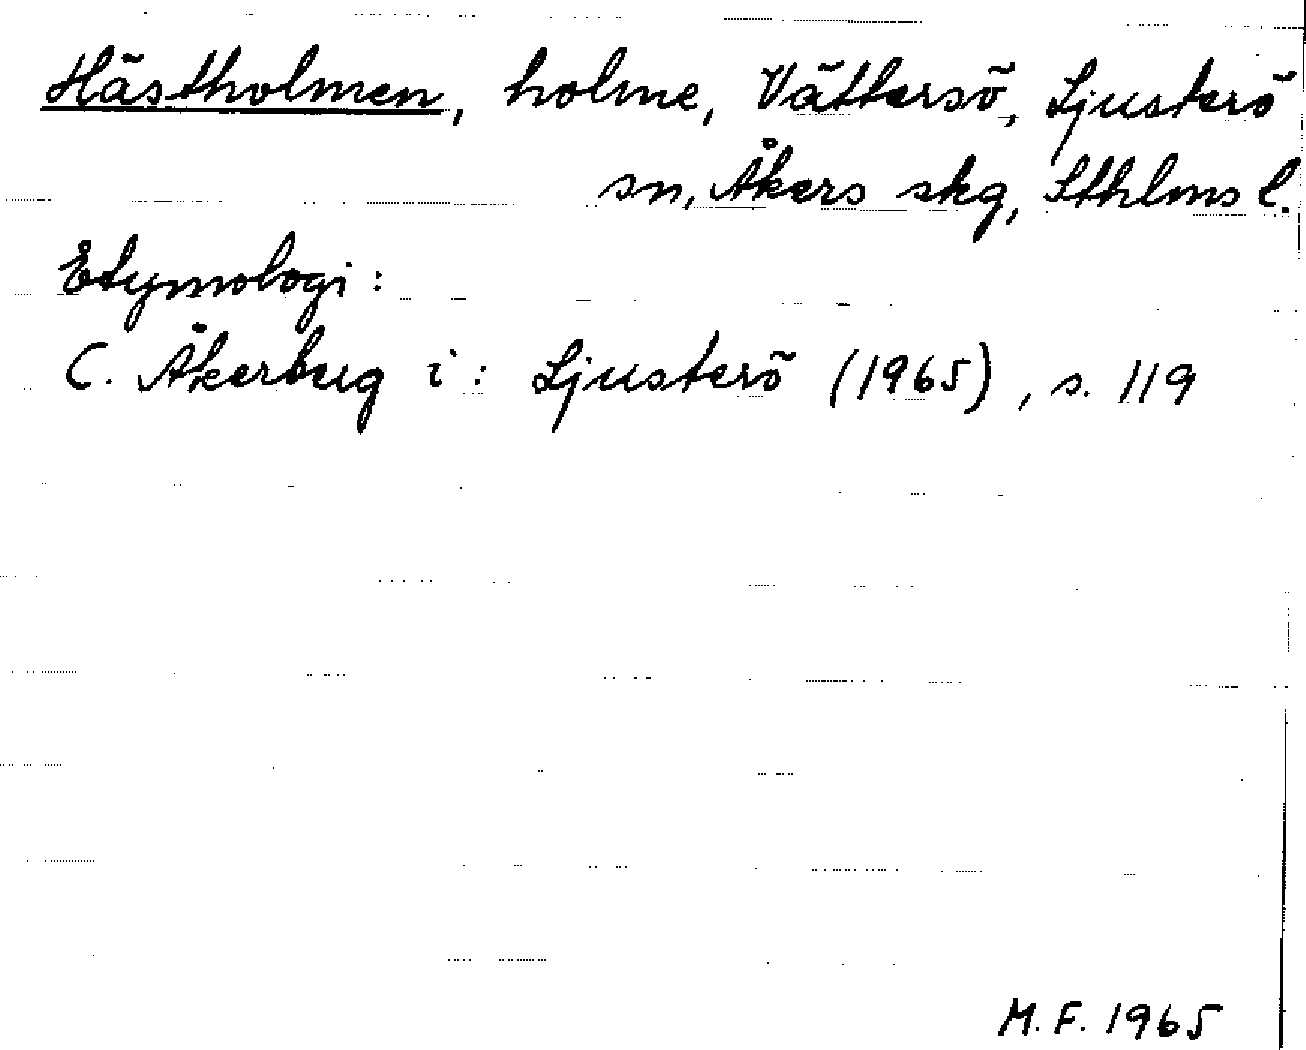 Hästholmen, holme, Vättersö, Ljusterö
sn, Åkers skg, Sthlms l.
Etymologi:
C. Åkerbug i: Ljusterö (1965), s. 119
M. F. 1965